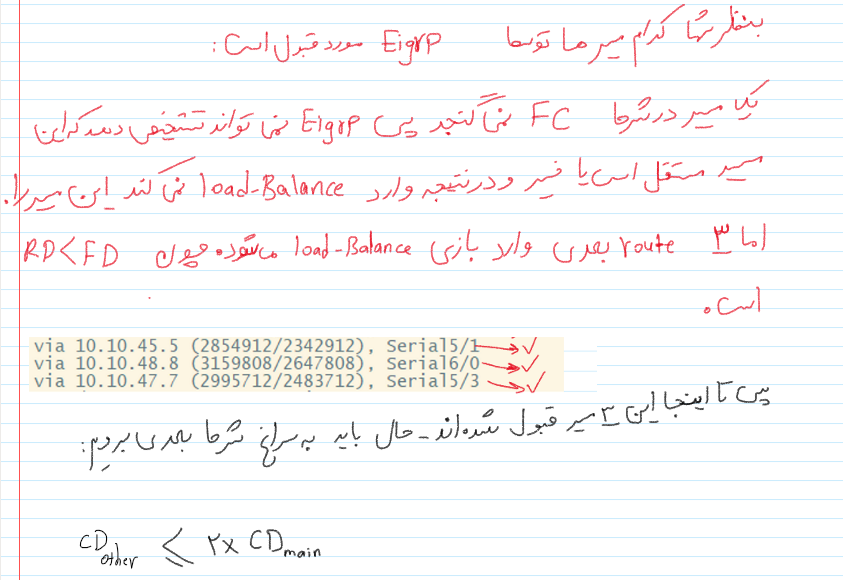 بنظر شما کدام مسیرها توسط Eigrp مورد قبول است:
یک مسیر در شرط FC نمی گنجد پس Eigrp نمی تواند تشخیص دهد که این
مسیر مستقل است یا خیر و در نتیجه وارد load-Balance نمی کند این مسیر را.
اما ۳ route بعدی وارد بازی load-Balance میشود. چون RD<FD
است.
via 10.10.45.5 (2854912/2342912), Serial5/1 → ✓
via 10.10.48.8 (3159808/2647808), Serial6/0 → ✓
via 10.10.47.7 (2995712/2483712), Serial5/3 → ✓
پس تا اینجا این ۳ مسیر قبول شده اند - حال باید به سراغ شرط بعدی برویم:
CD other ≤ ۲x CD main